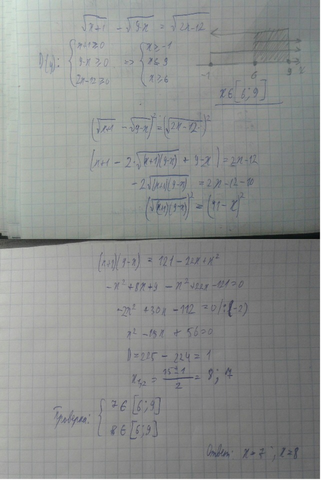 √(x+1) - √(9-x) = √(2x-12)
D(y): { x+1≥0 => { x≥-1
9-x≥0 x≤9
2x-12≥0 x≥6
-1 6 9 x
x∈[6;9]
(√(x+1) - √(9-x))² = (√(2x-12))²
x+1-2·√((x+1)(9-x)) + 9-x = 2x-12
-2√((x+1)(9-x)) = 2x-12-10
(√((x+1)(9-x)))² = (11-x)²
(x+1)(9-x) = 121-22x+x²
-x²+8x+9-x²+22x-121=0
-2x²+30x-112=0/:(-2)
x²-15x+56=0
D=225-224=1
x₁,₂ = (15±1)/2 = 8; 7
Проверка: { 7∈[6;9]
8∈[6;9]
Ответ: x=7; x=8